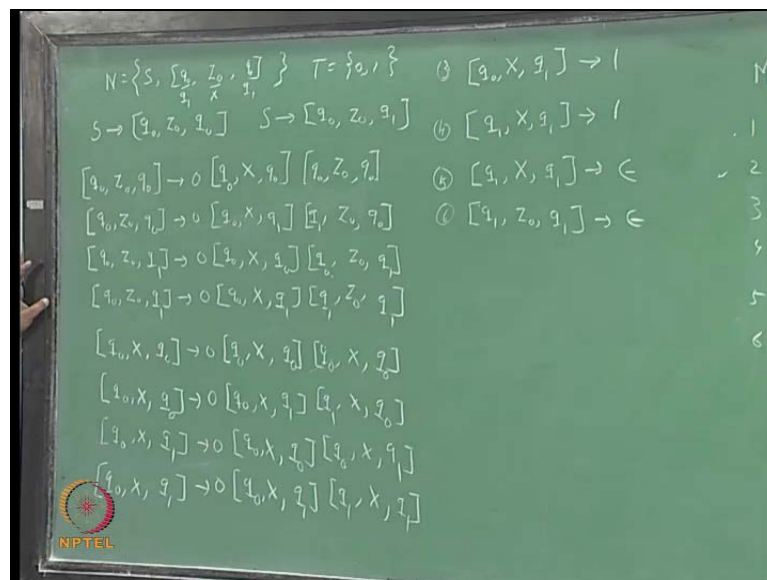 N = {S, [q₀/q₁, Z₀/X, q₀/q₁] } T = {0, 1}
S → [q₀, Z₀, q₀] S → [q₀, Z₀, q₁]
[q₀, Z₀, q₀] → 0 [q₀, X, q₀] [q₀, Z₀, q₀]
[q₀, Z₀, q₀] → 0 [q₀, X, q₁] [q₁, Z₀, q₀]
[q₀, Z₀, q₁] → 0 [q₀, X, q₀] [q₀, Z₀, q₁]
[q₀, Z₀, q₁] → 0 [q₀, X, q₁] [q₁, Z₀, q₁]
[q₀, X, q₀] → 0 [q₀, X, q₀] [q₀, X, q₀]
[q₀, X, q₀] → 0 [q₀, X, q₁] [q₁, X, q₀]
[q₀, X, q₁] → 0 [q₀, X, q₀] [q₀, X, q₁]
[q₀, X, q₁] → 0 [q₀, X, q₁] [q₁, X, q₁]
③ [q₀, X, q₁] → 1
④ [q₁, X, q₁] → 1
⑤ [q₁, X, q₁] → ∈
⑥ [q₁, Z₀, q₁] → ∈
1
2
3
4
5
6
NPTEL